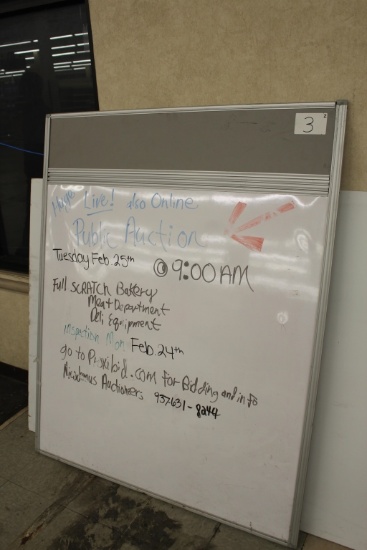 3
Here Live! also Online
Public Auction
Tuesday Feb 25th
@ 9:00 AM
Full SCRATCH Bakery
Meat Department
Deli Equipment
Inspection Mon. Feb 24th
go to Proxibid.com For Bidding and info
Auctioneers 937631-8244